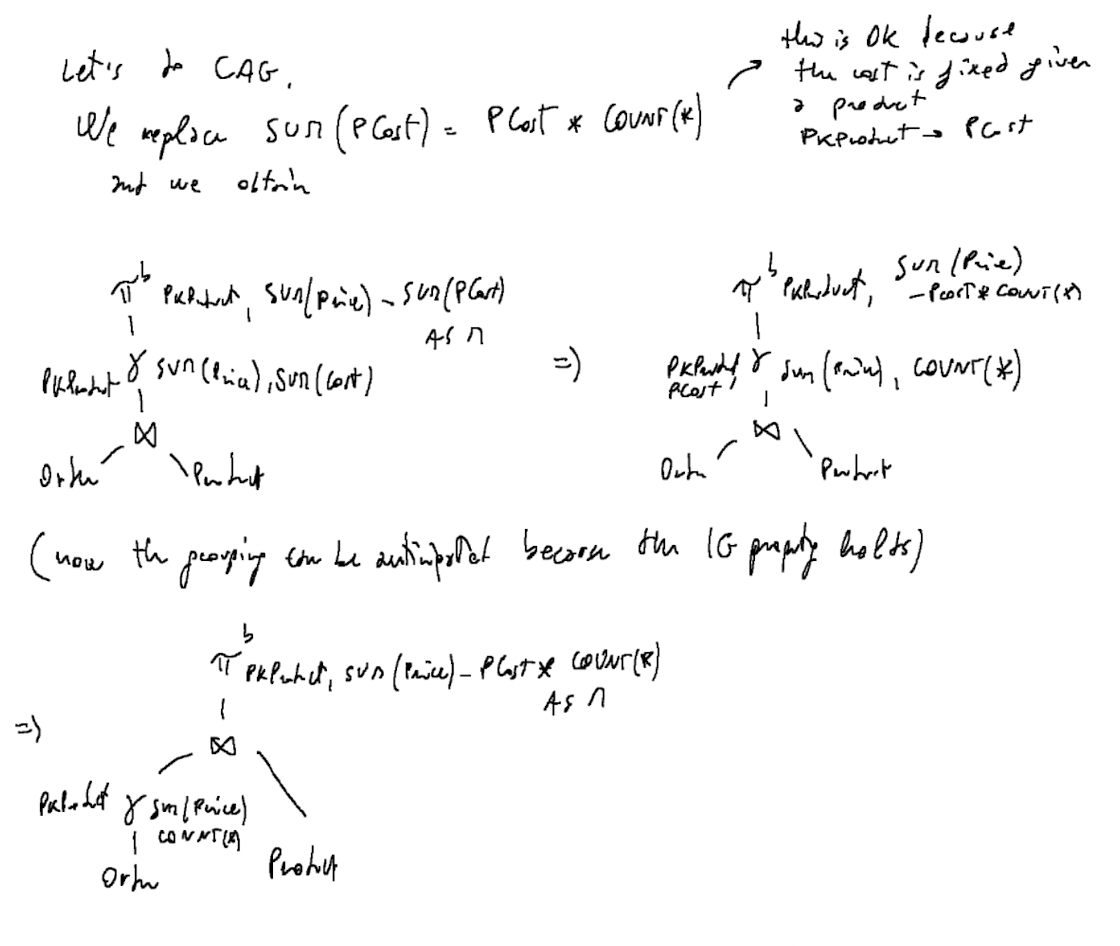 Let's do CAG.
We replace SUM(PCost) = PCost * COUNT(*)
and we obtain
this is OK because
the cost is fixed given
a product
PKProduct → PCost
π^b PKProduct, SUM(Price) - SUM(PCost)
AS M
PKProduct γ SUM(Price), SUM(Cost)
⋈
Order Product
=>
π^b PKProduct, SUM(Price)
- PCOST * COUNT(*)
PKProduct, γ SUM(Price), COUNT(*)
PCost
⋈
Order Product
(now the grouping can be anticipated because the IG property holds)
=>
π^b PKProduct, SUM(Price) - PCost * COUNT(*)
AS M
⋈
PKProduct γ SUM(Price)
COUNT(*)
Order Product